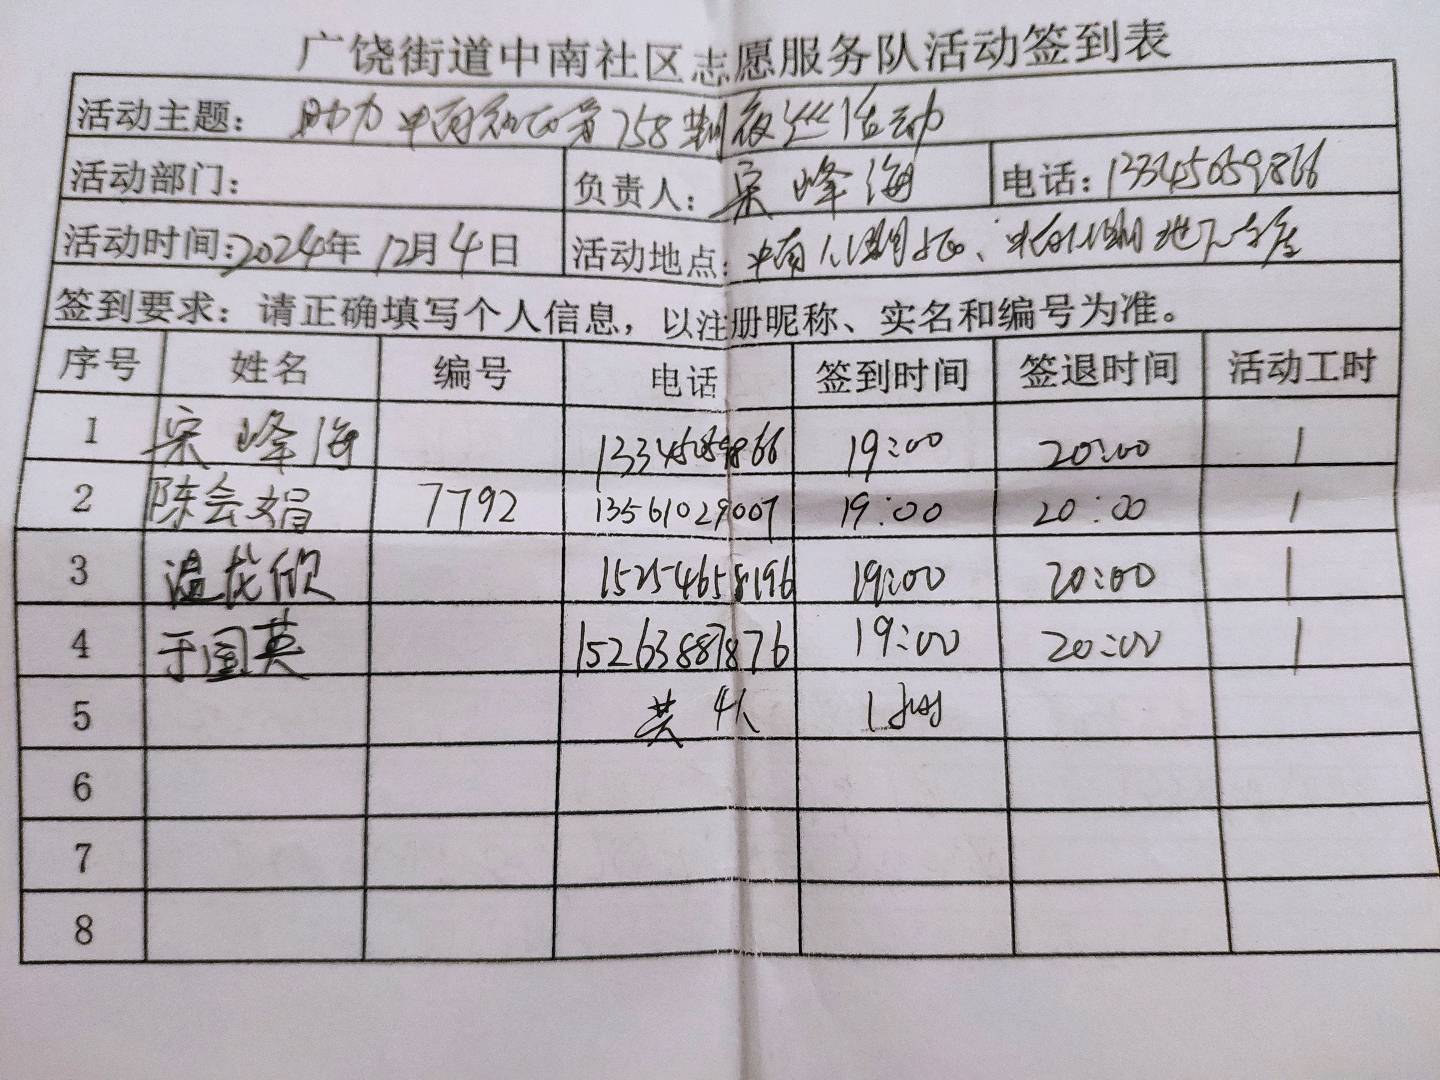 广饶街道中南社区志愿服务队活动签到表
活动主题: 助力中南 758 夜 活动
活动部门: 负责人: 宋峰海 电话: 13345059866
活动时间: 2024年12月4日 活动地点: 中南 期 、 期地下
签到要求: 请正确填写个人信息，以注册昵称、实名和编号为准。
序号 姓名 编号 电话 签到时间 签退时间 活动工时
1 宋峰海 13345059866 19:00 20:00 1
2 陈会娟 7792 13561029007 19:00 20:00 1
3 温龙欣 15254658196 19:00 20:00 1
4 于国英 15263887876 19:00 20:00 1
5 共4人 1小时
6
7
8